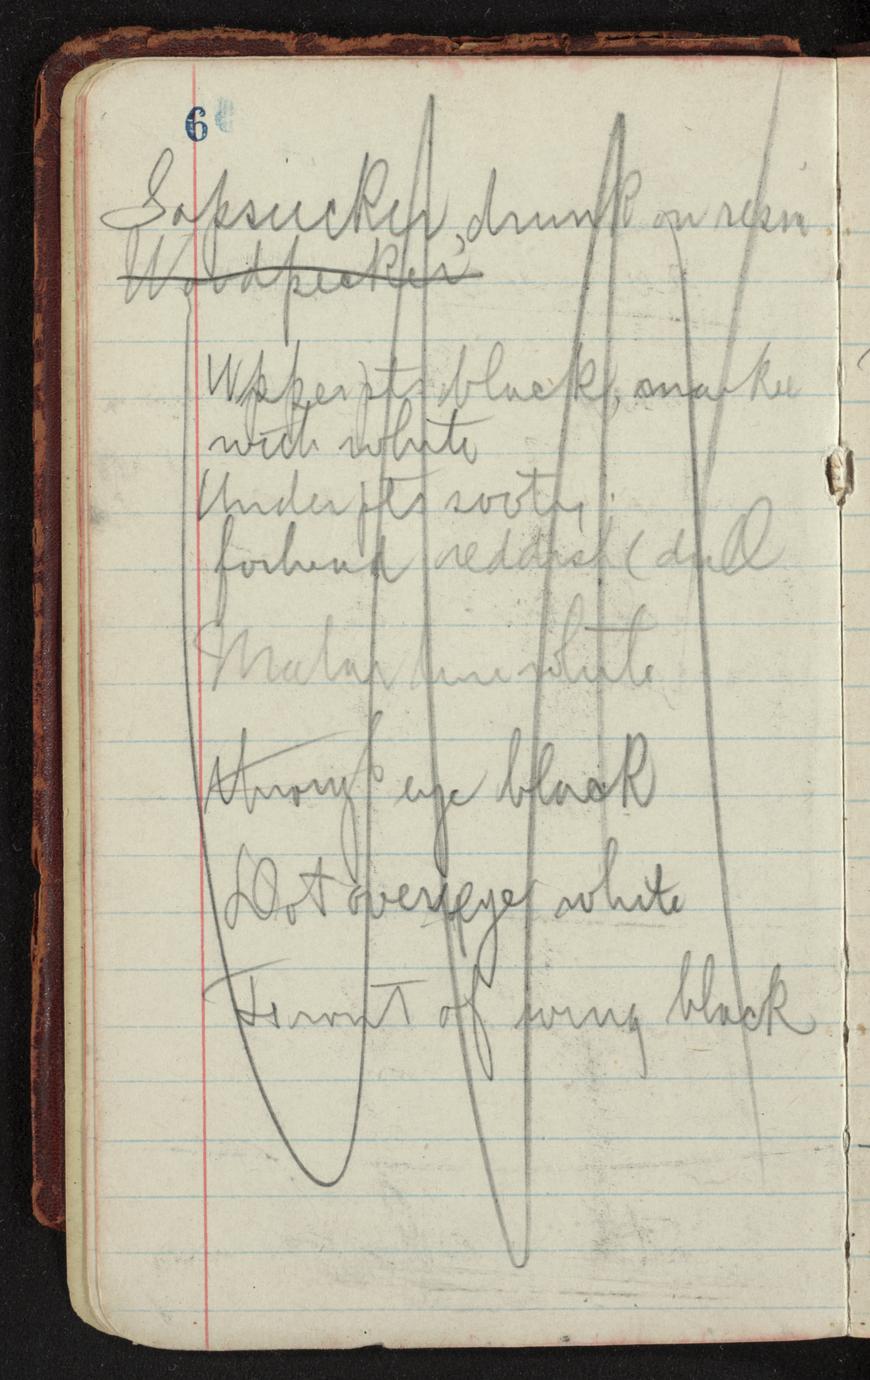 6
Sapsucker, drunk on resin
Woodpecker
Upper pts black, marked
with white
Under pts sooty
forhead reddish (dull
Malar line white
through eye black
Dot over eye white
Front of wing black